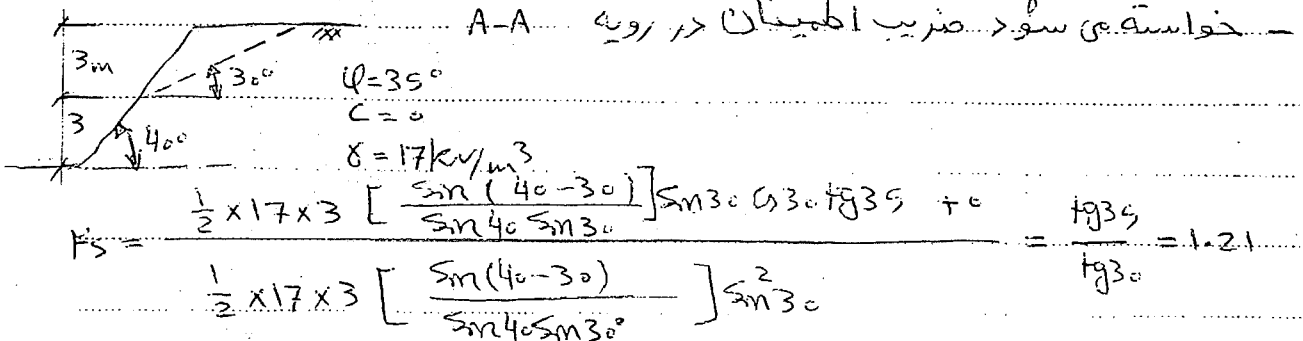 - خواسته می شود ضریب اطمینان در رویه A-A
3m
30°
φ=35°
3
40°
C = 0
γ = 17 kN/m³
Fs = \frac{\frac{1}{2} × 17 × 3 [ \frac{Sin (40-30)}{Sin 40 Sin 30} ] Sin 30 Cos 30 tg 35 + 0}{\frac{1}{2} × 17 × 3 [ \frac{Sin(40-30)}{Sin 40 Sin 30°} ] Sin² 30} = \frac{tg 35}{tg 30} = 1.21